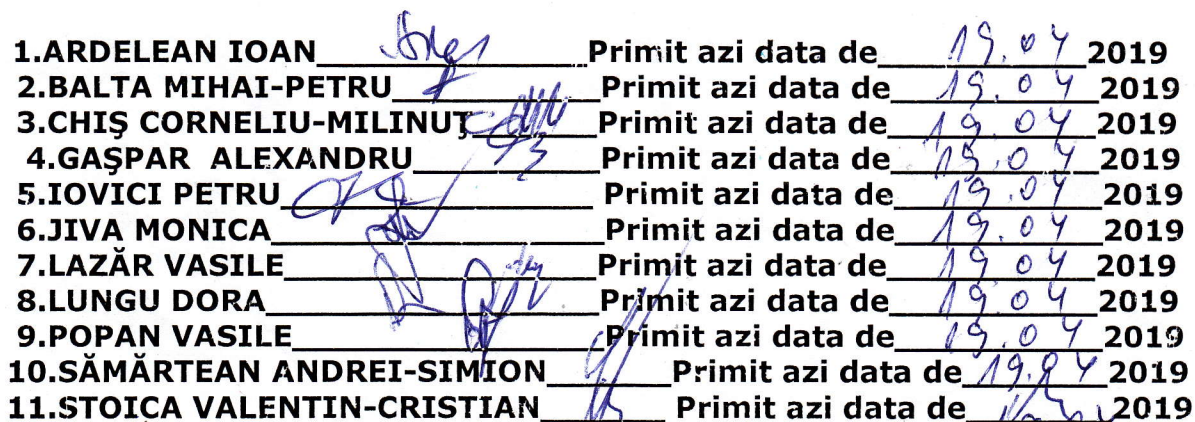 1.ARDELEAN IOAN Primit azi data de 19.04 2019
2.BALTA MIHAI-PETRU Primit azi data de 19.04 2019
3.CHIŞ CORNELIU-MILINUŢ Primit azi data de 19.04 2019
4.GAŞPAR ALEXANDRU Primit azi data de 19.04 2019
5.IOVICI PETRU Primit azi data de 19.04 2019
6.JIVA MONICA Primit azi data de 19.04 2019
7.LAZĂR VASILE Primit azi data de 19.04 2019
8.LUNGU DORA Primit azi data de 19.04 2019
9.POPAN VASILE Primit azi data de 19.04 2019
10.SĂMĂRTEAN ANDREI-SIMION Primit azi data de 19.04 2019
11.STOICA VALENTIN-CRISTIAN Primit azi data de 2019